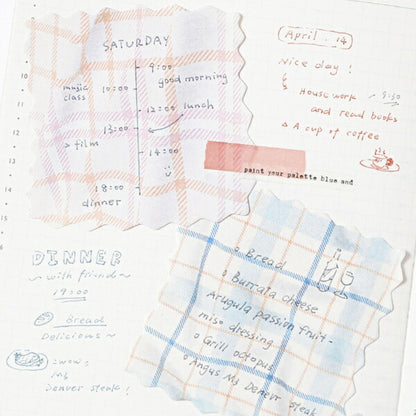 SATURDAY
9:00
good morning
music
class
10:00
12:00 lunch
13:00
> film
14:00
18:00
dinner
April . 14
Nice day !
House work 9:30
and read books
A cup of coffee
paint your palette blue and
DINNER
~ with friends ~
19:00
Bread
Delicious ~
: wow,
M5
Denver steak !
o Bread
o Burrata cheese
Arugula passion fruit-
miso dressing
o Grill octopus
o Angus M5 Denver steak
10
11
12
13
14
15